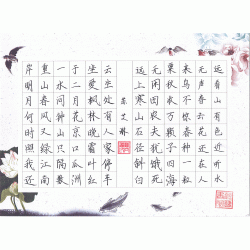 远看山有色近听水
无声春去花还在人
来鸟不惊春种一粒
粟秋收万颗子四海
无闲田农夫犹饿死
远上寒山石径斜白
云生处有人家停车
坐爱枫林晚霜叶红
于二月花京口瓜洲
一水间钟山只隔数
重山春风又绿江南
岸明月何时照我还